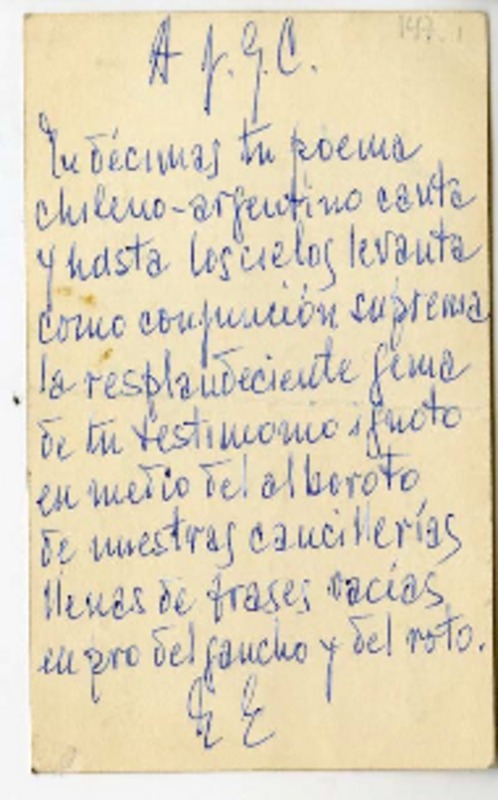 147.1
A J.G.C.
En décimas tu poema
chileno-argentino canta
y hasta los cielos levanta
como conjunción suprema
la resplandeciente gema
de tu testimonio ignoto
en medio del alboroto
de nuestras cancillerías
llenas de frases vacías
en pro del gaucho y del roto.
E E